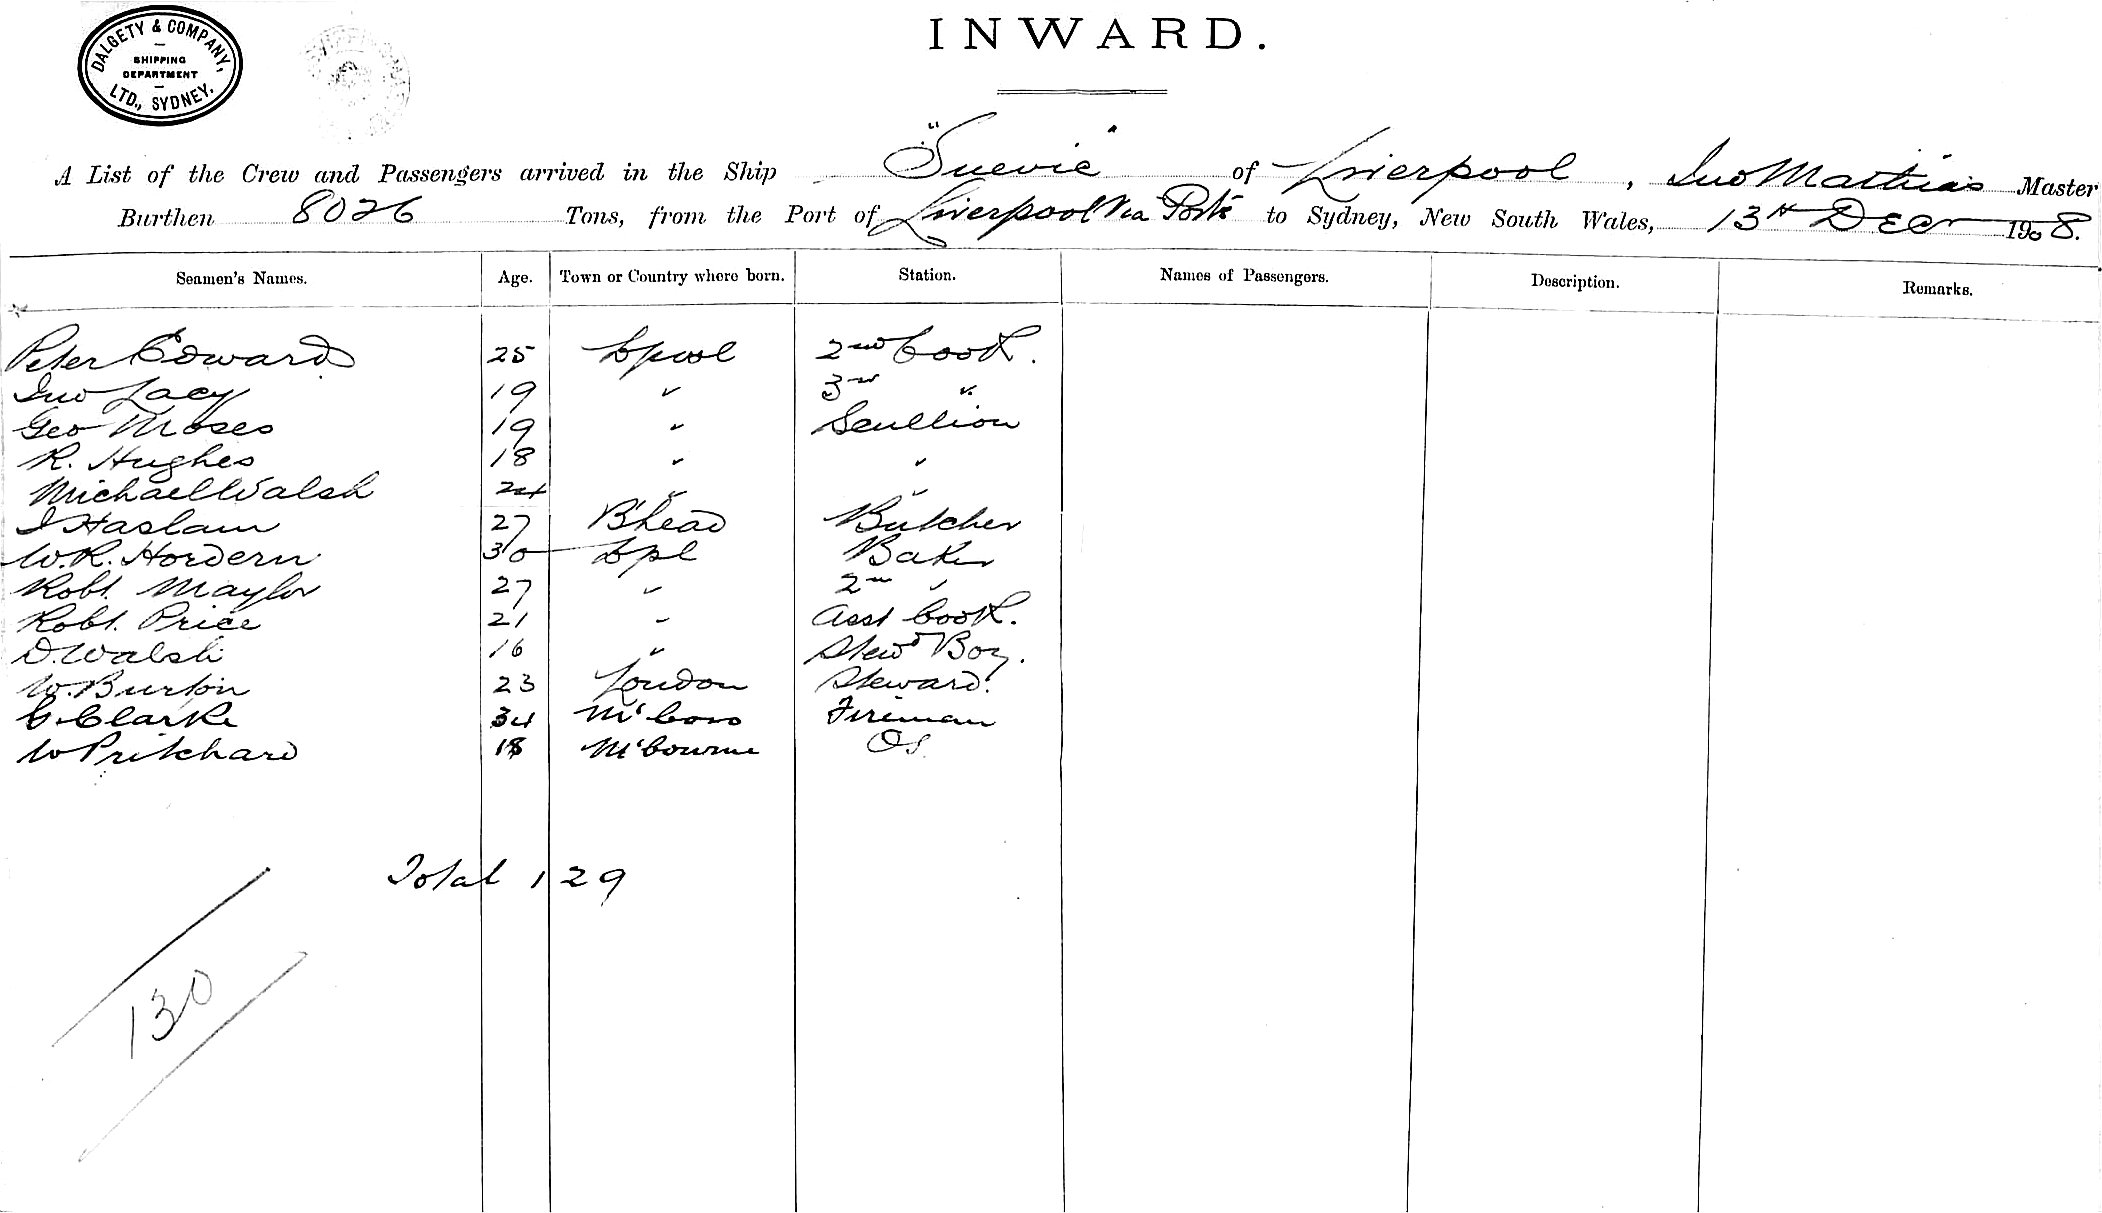 DALGETY & COMPANY,
SHIPPING
DEPARTMENT
LTD., SYDNEY.
INWARD.
A List of the Crew and Passengers arrived in the Ship "Suevic" of Liverpool, Jno Mathias Master
Burthen 8026 Tons, from the Port of Liverpool Via Ports to Sydney, New South Wales, 13th Decr 1908.
Seamen's Names. Age. Town or Country where born. Station. Names of Passengers. Description. Remarks.
Peter Edward 25 Lpool 2nd Cook.
Jno Lacy 19 " 3rd "
Geo Moses 19 " Scullion
R. Hughes 18 " "
Michael Walsh 24 " "
J Haslam 27 B'head Butcher
W.R. Hordern 30 Lpl Baker
Robt. Maylor 27 " 2nd "
Robt. Price 21 " Asst Cook.
D. Walsh 16 " Stewds Boy.
W. Burton 23 London Steward.
C. Clarke 34 Fireman
W Pritchard 18 M'bourne OS.
Total 129
130